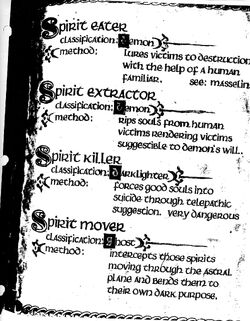 Spirit eater
classification: Demon
method: lures victims to destruction
with the help of a human
familiar. see: masselin
Spirit extractor
classification: Demon
method: Rips souls from human
victims rendering victims
suggestible to demon's will..
Spirit killer
classification: Darklighter
method: forces good souls into
suicide through telepathic
suggestion. very dangerous
Spirit mover
classification: Ghost
method: intercepts those spirits
moving through the astral
plane and bends them to
their own dark purpose.